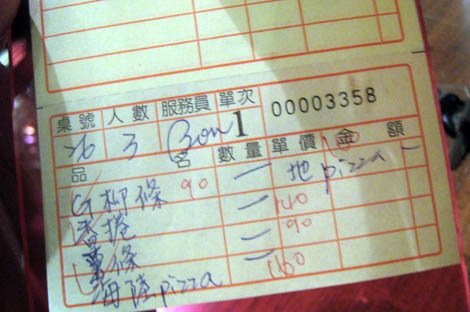 桌號 人數 服務員 單次 00003358
3 Bon 1
品名 數量 單價 金額
柳條 90 一 地 pizza 一
香 一 140
薯條 一 90
海陸 pizza 一 160